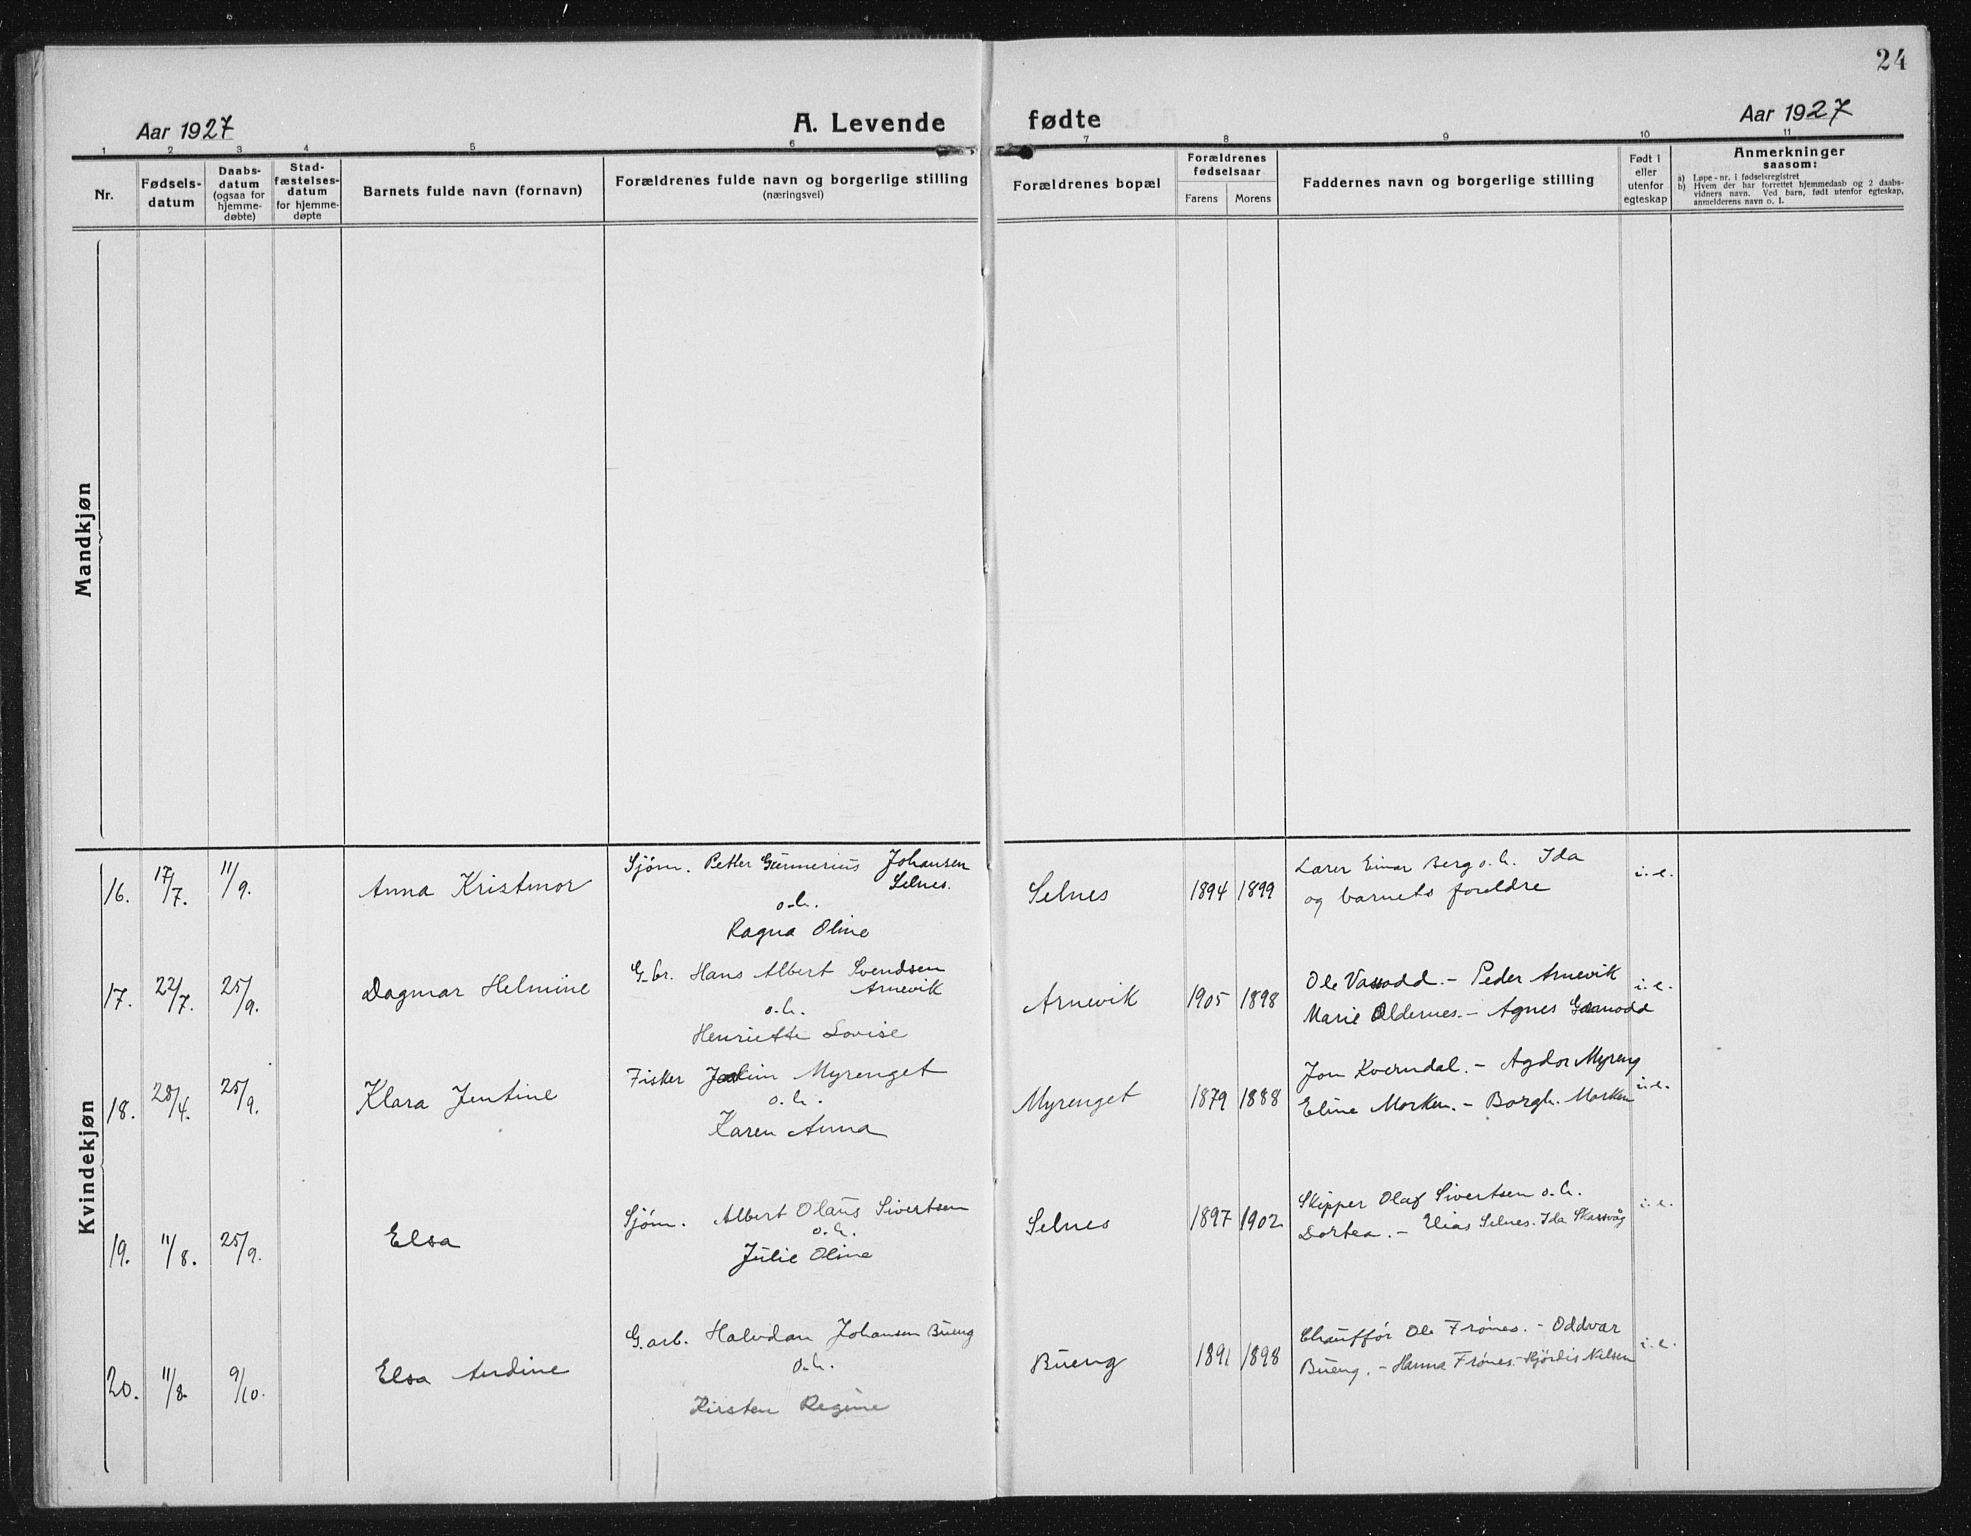 24
Aar 1927
A. Levende fødte
Aar 1927
1 2 3 4 5 6 7 8 9 10 11
Nr.
Fødsels-
datum
Daabs-
datum
(ogsaa for
hjemme-
døbte)
Stad-
fæstelses-
datum
for hjemme-
døpte
Barnets fulde navn (fornavn)
Forældrenes fulde navn og borgerlige stilling
(næringsvei)
Forældrenes bopæl
Forældrenes
fødselsaar
Farens Morens
Faddernes navn og borgerlige stilling
Født i
eller
utenfor
egteskap
Anmerkninger
saasom:
a) Løpe-nr. i fødselsregistret
b) Hvem der har forrettet hjemmedaab og 2 daabs-
vidners navn. Ved barn, født utenfor egteskap,
anmelderens navn o. l.
Mandkjøn
Kvindekjøn
16. 17/7. 11/9. Anna Kristmor
Sjøm. Petter Gunnerius Johansen
Selnes.
o.h.
Ragna Oline
Selnes 1894 1899
Lærer Einar Berg o.h. Ida
og barnets foreldre
i.e.
17. 22/7. 25/9. Dagmar Helmine
G.br. Hans Albert Svendsen
Arnevik
o.h.
Henriette Lovise
Arnevik 1905 1898
Ole Vasodd. – Peder Arnevik
Marie Oldernes. – Agnes
i.e.
18. 28/4. 25/9. Klara Jentine
Fisker Myrenget
o.h.
Karen Anna
Myrenget 1879 1888
Jon Kverndal. – Agdor Myreng
Eline Morken. – Borgh. Morken
i.e.
19. 11/8. 25/9. Elsa
Sjøm. Albert Olaus Sivertsen
o.h.
Julie Oline
Selnes 1897 1902.
Skipper Olaf Sivertsen o.h.
Dortea. – Elias Selnes. Ida Skarsvåg
i.e.
20. 11/8. 9/10. Elsa Andine
G.arb. Halvdan Johansen Bueng
o.h.
Kirsten Regine
Bueng 1891 1898
Chauffør Ole Frønes. – Oddvar
Bueng. – Hanna Frønes. – Hjørdis Nilsen
i.e.